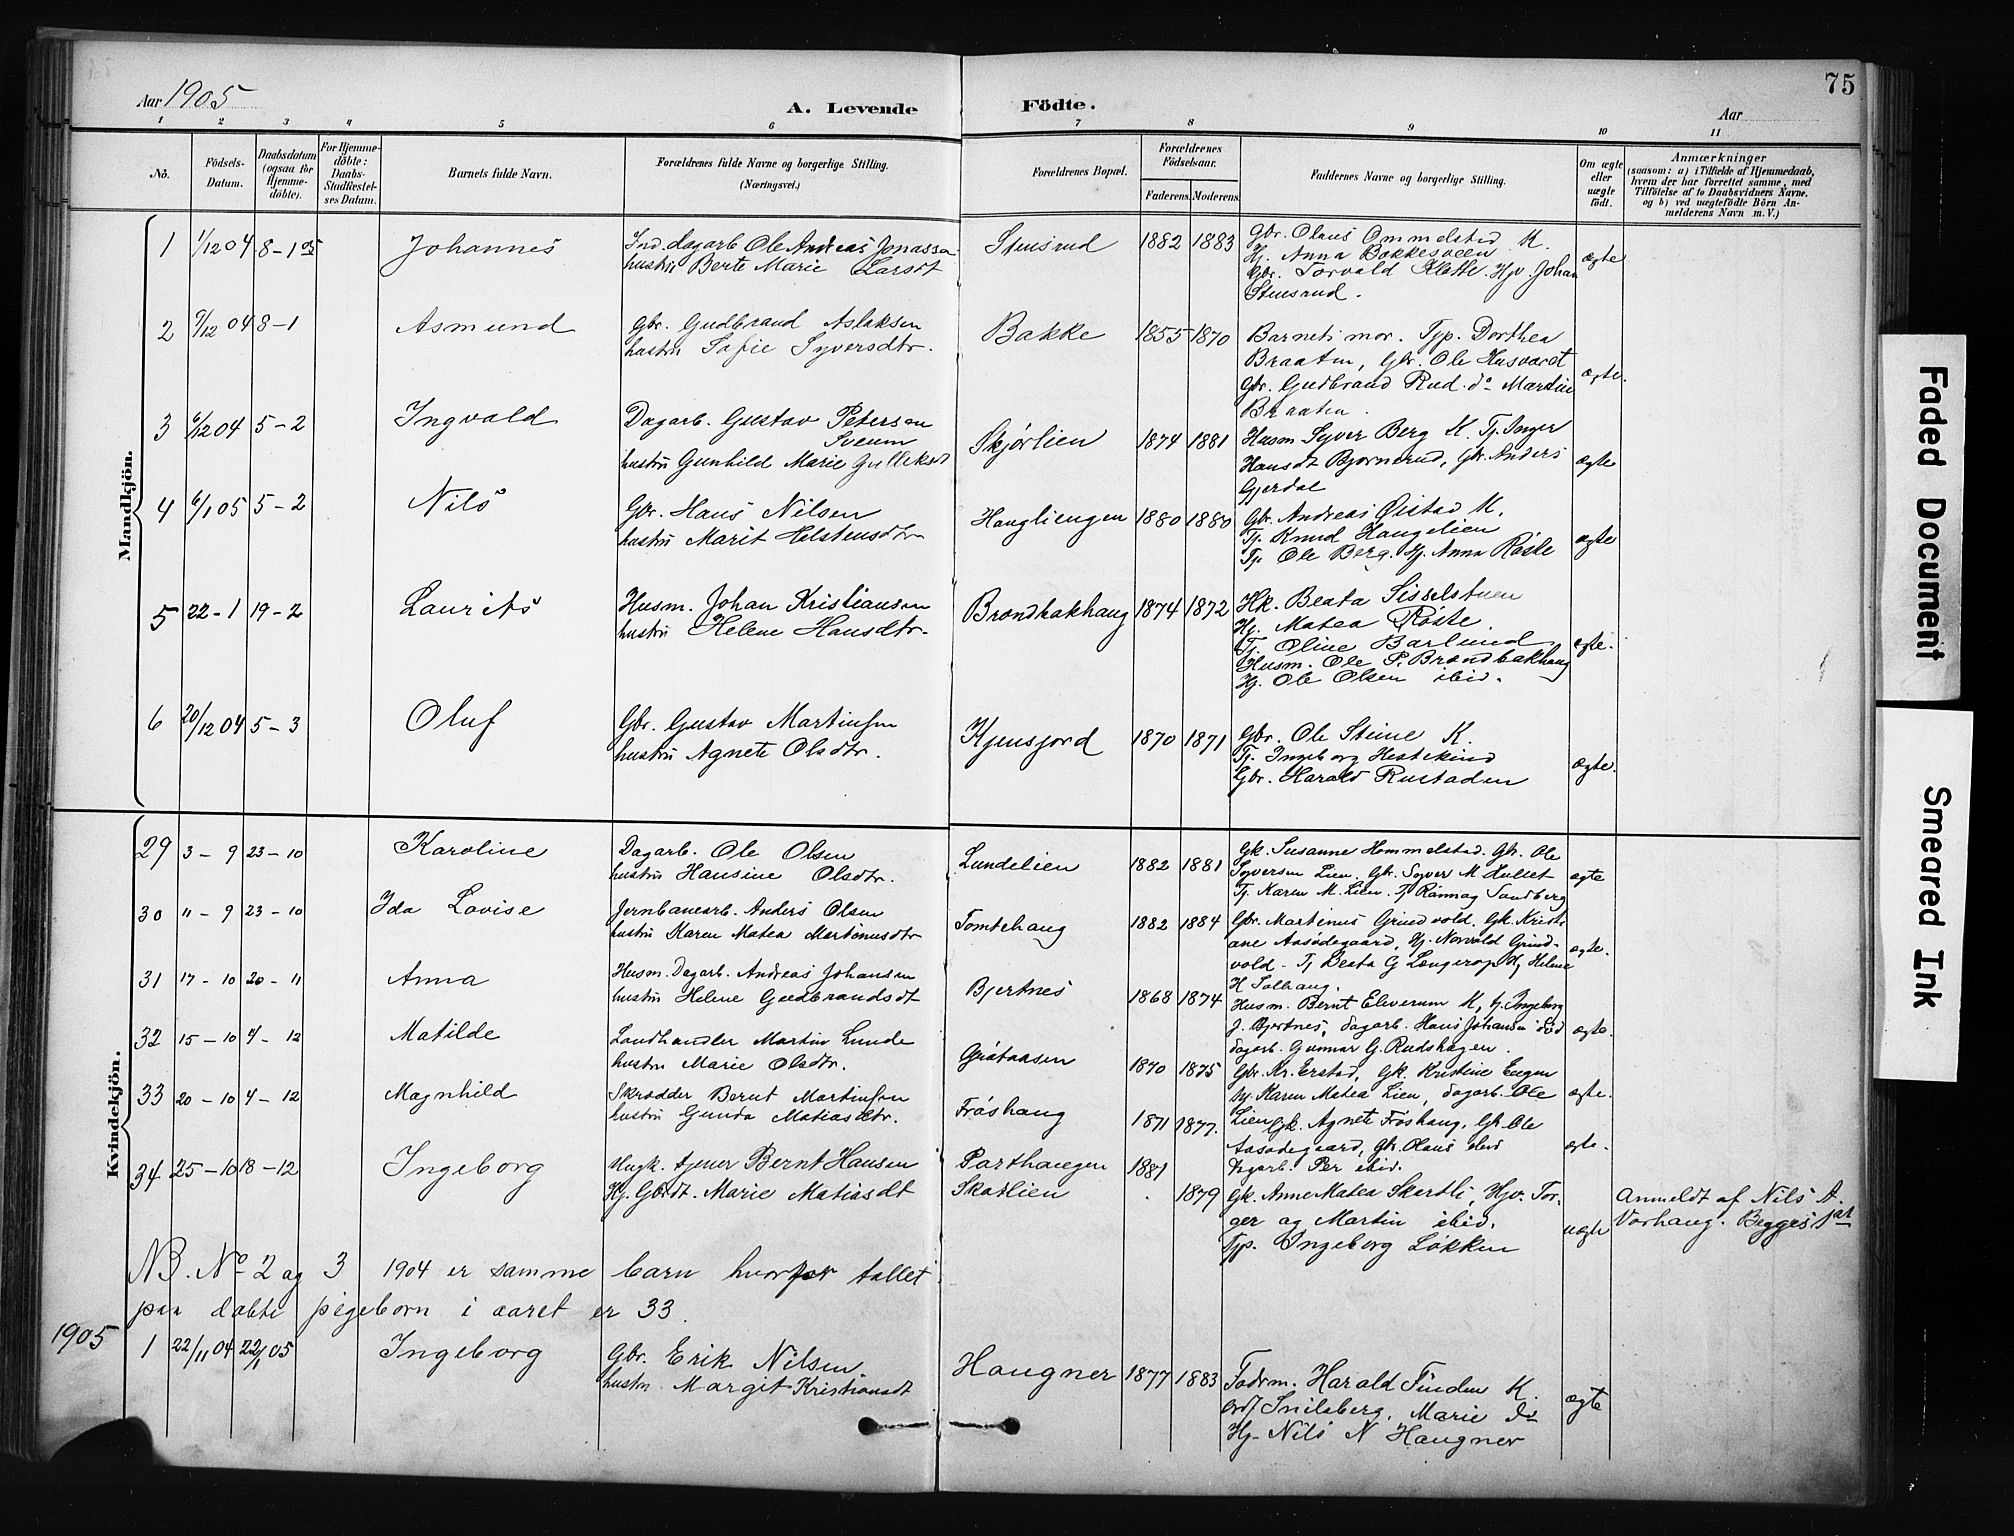 75
Aar 1905
A. Levende Födte.
Aar
1 2 3 4 5 6 7 8 9 10 11
No.
Födsels-Datum.
Daabsdatum (ogsaa for Hjemme-döbte).
For Hjemme-döbte: Daabs-Stadfæstel-ses Datum.
Barnets fulde Navn.
Forældrenes fulde Navne og borgerlige Stilling.
(Næringsvei.)
Forældrenes Bopæl.
Forældrenes Födselsaar.
Faderens. Moderens.
Faddernes Navne og borgerlige Stilling.
Om ægte eller uægte födt.
Anmærkninger
(saasom: a) i Tilfælde af Hjemmedaab, hvem der har forrettet samme, med Tilföielse af to Daabsvidners Navne. og b) ved uægtefödte Börn An-melderens Navn m. V.)
Mandkjön.
1 1/12 04 8-1 05 Johannes
Ind. dagarb Ole Andreas Jonassen
hustru Berte Marie Larsdt
Stensrud 1882 1883
Gbr. Olaus Ommelstad K.
Hj. Anna Bakkesveen
Gbr. Torvald Klette. Hjv. Johan
Stensrud.
ægte
2 9/12 04 8-1 Asmund
Gbr. Gudbrand Aslaksen
hustru Sofie Syversdtr.
Bakke 1855 1870
Barnets mor. Tjp. Dorthea
Braaten, Gbr. Ole Husvaret
Gbr. Gudbrand Rud. do Martin
Braaten.
ægte.
3 6/12 04 5-2 Ingvald
Dagarb. Gustav Petersen
Sveum
hustru Gunhild Marie Gulleksdt
Skjørlien 1874 1881
Husm. Syver Berg K. Tj. Inger
Hansdt Bjørnerud, Gbr. Anders
Gjerdal
ægte
4 6/1 05 5-2 Nils
Gbr. Hans Nilsen
hustru Marit Helstensdtr
Haugliengen 1880 1880
Gbr. Andreas Øistad K.
Tj. Knud Haugelien
Tj. Ole Berg. Hj. Anna Røste
ægte
5 22-1 19-2 Laurits
Husm. Johan Kristiansen
hustru Helene Hansdtr.
Brændbakhaug 1874 1872
Hk. Beata Sisselstuen
Hj. Matea Røste.
Tj. Oline Barlund
Husm. Ole P. Brændbakhaug
Hj. Ole Olsen ibid.
ægte.
6 20/12 04 5-3 Oluf
Gbr. Gustav Martinsen
hustru Agnete Olsdtr.
Kjensjord 1870 1871
Gbr. Ole Steine K.
Tj. Ingeborg Hestekind
Gbr. Harald Rustaden
ægte.
Kvindekjön.
29 3-9 23-10 Karoline
Dagarb. Ole Olsen
hustru Hansine Olsdtr.
Lundelien 1882 1881
Gk. Susanne Hommelstad. Gbr. Ole
Syversen Lien. Gbr. Syver M Hullet
Tj. Karen M. Lien. Tj Rønnag Sandberg
ægte
30 11-9 23-10 Ida Lovise
Jernbanearb. Anders Olsen
hustru Karen Matea Martinusdtr
Tomtehaug 1882 1884
Gbr. Martinus Grindvold. Gk. Kristi
ane Aasødegaard, Hj. Norvald Grind-
vold. Tj Beata G Længerop Hj Helene
H Solhaug.
ægte.
31 17-10 20-11 Anna
Husm. Dagarb. Andreas Johansen
hustru Helene Gudbrandsdt
Bjertnes 1868 1874
Husm. Bernt Elverum K, Hj. Ingeborg
J. Bjertnes, dagarb. Hans Johansen ibid
dagarb. Gunnar G. Rudshagen.
ægte.
32 15-10 4-12 Matilde
Landhandler Martin Lunde
hustru Marie Olsdtr.
1870 1875
Gbr. Kr. Erstad, Gk. Kristine Engen
Hj. Karen Matea Lien, dagarb. Ole
Lien
ægte.
33 20-10 4-12 Magnhild
Skrædder Bernt Martinsen
hustru Gunda Matiasdtr.
Frøshaug 1871 1877.
Gk. Agnete Frøshaug, Gbr. Ole
Aasødegaard, Gbr. Olaus ibid
Dagarb. Per ibid.
ægte.
34 25-10 18-12 Ingeborg
Ungk. tjener Bernt Hansen
Hj. Gbrdt. Marie Matiasdt
Parthaugen 1881
Skartlien 1879
Gk. Anne Matea Skartli, Hjv. Tor-
ger og Martin ibid.
Tjp. Ingeborg Løkken
uægte
Anmeldt af Nils A.
Vorhaug. Begges 1st
NB. No 2 og 3 1904 er samme barn hvorfor tallet
paa døbte pigeborn i aaret er 33.
1905
1 22/11 04 22/1 05 Ingeborg
Gbr. Erik Nilsen
hustru Margit Kristiansdt
Haugner 1877 1883
Fadrm. Harald Finden K.
Snilsberg, Marie do
Hj. Nils N Haugner
ægte
Faded Document
Smeared Ink